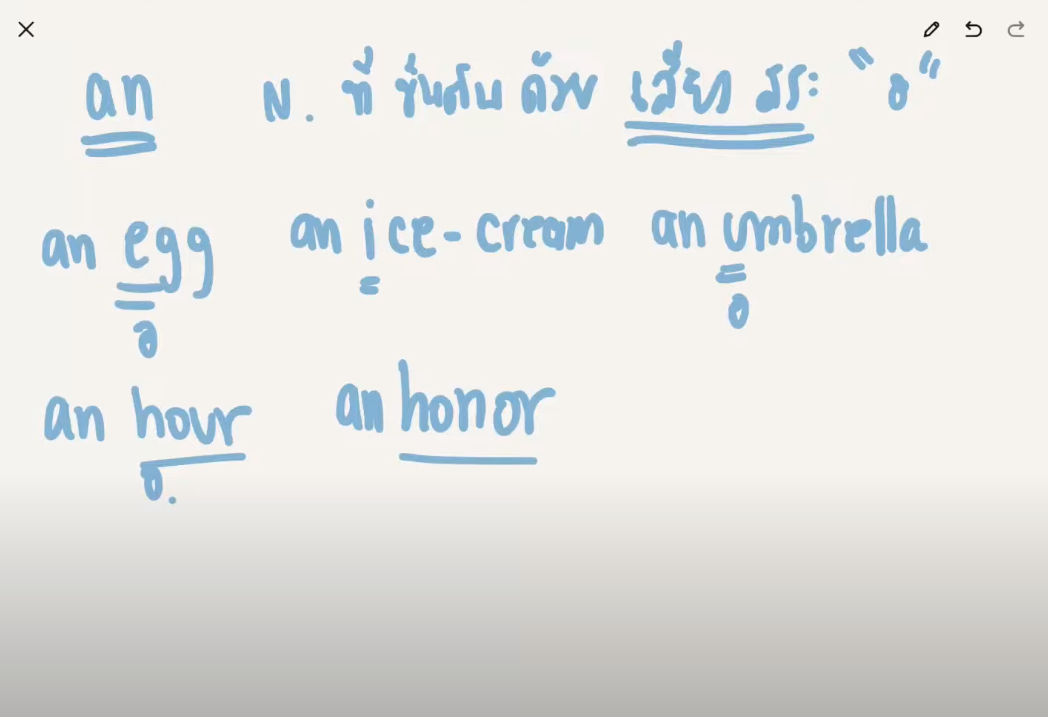 an N. ที่ ขึ้นต้น ด้วย เสียง สระ "อ"
an egg an ice-cream an umbrella
อ อ
an hour an honor
อ.